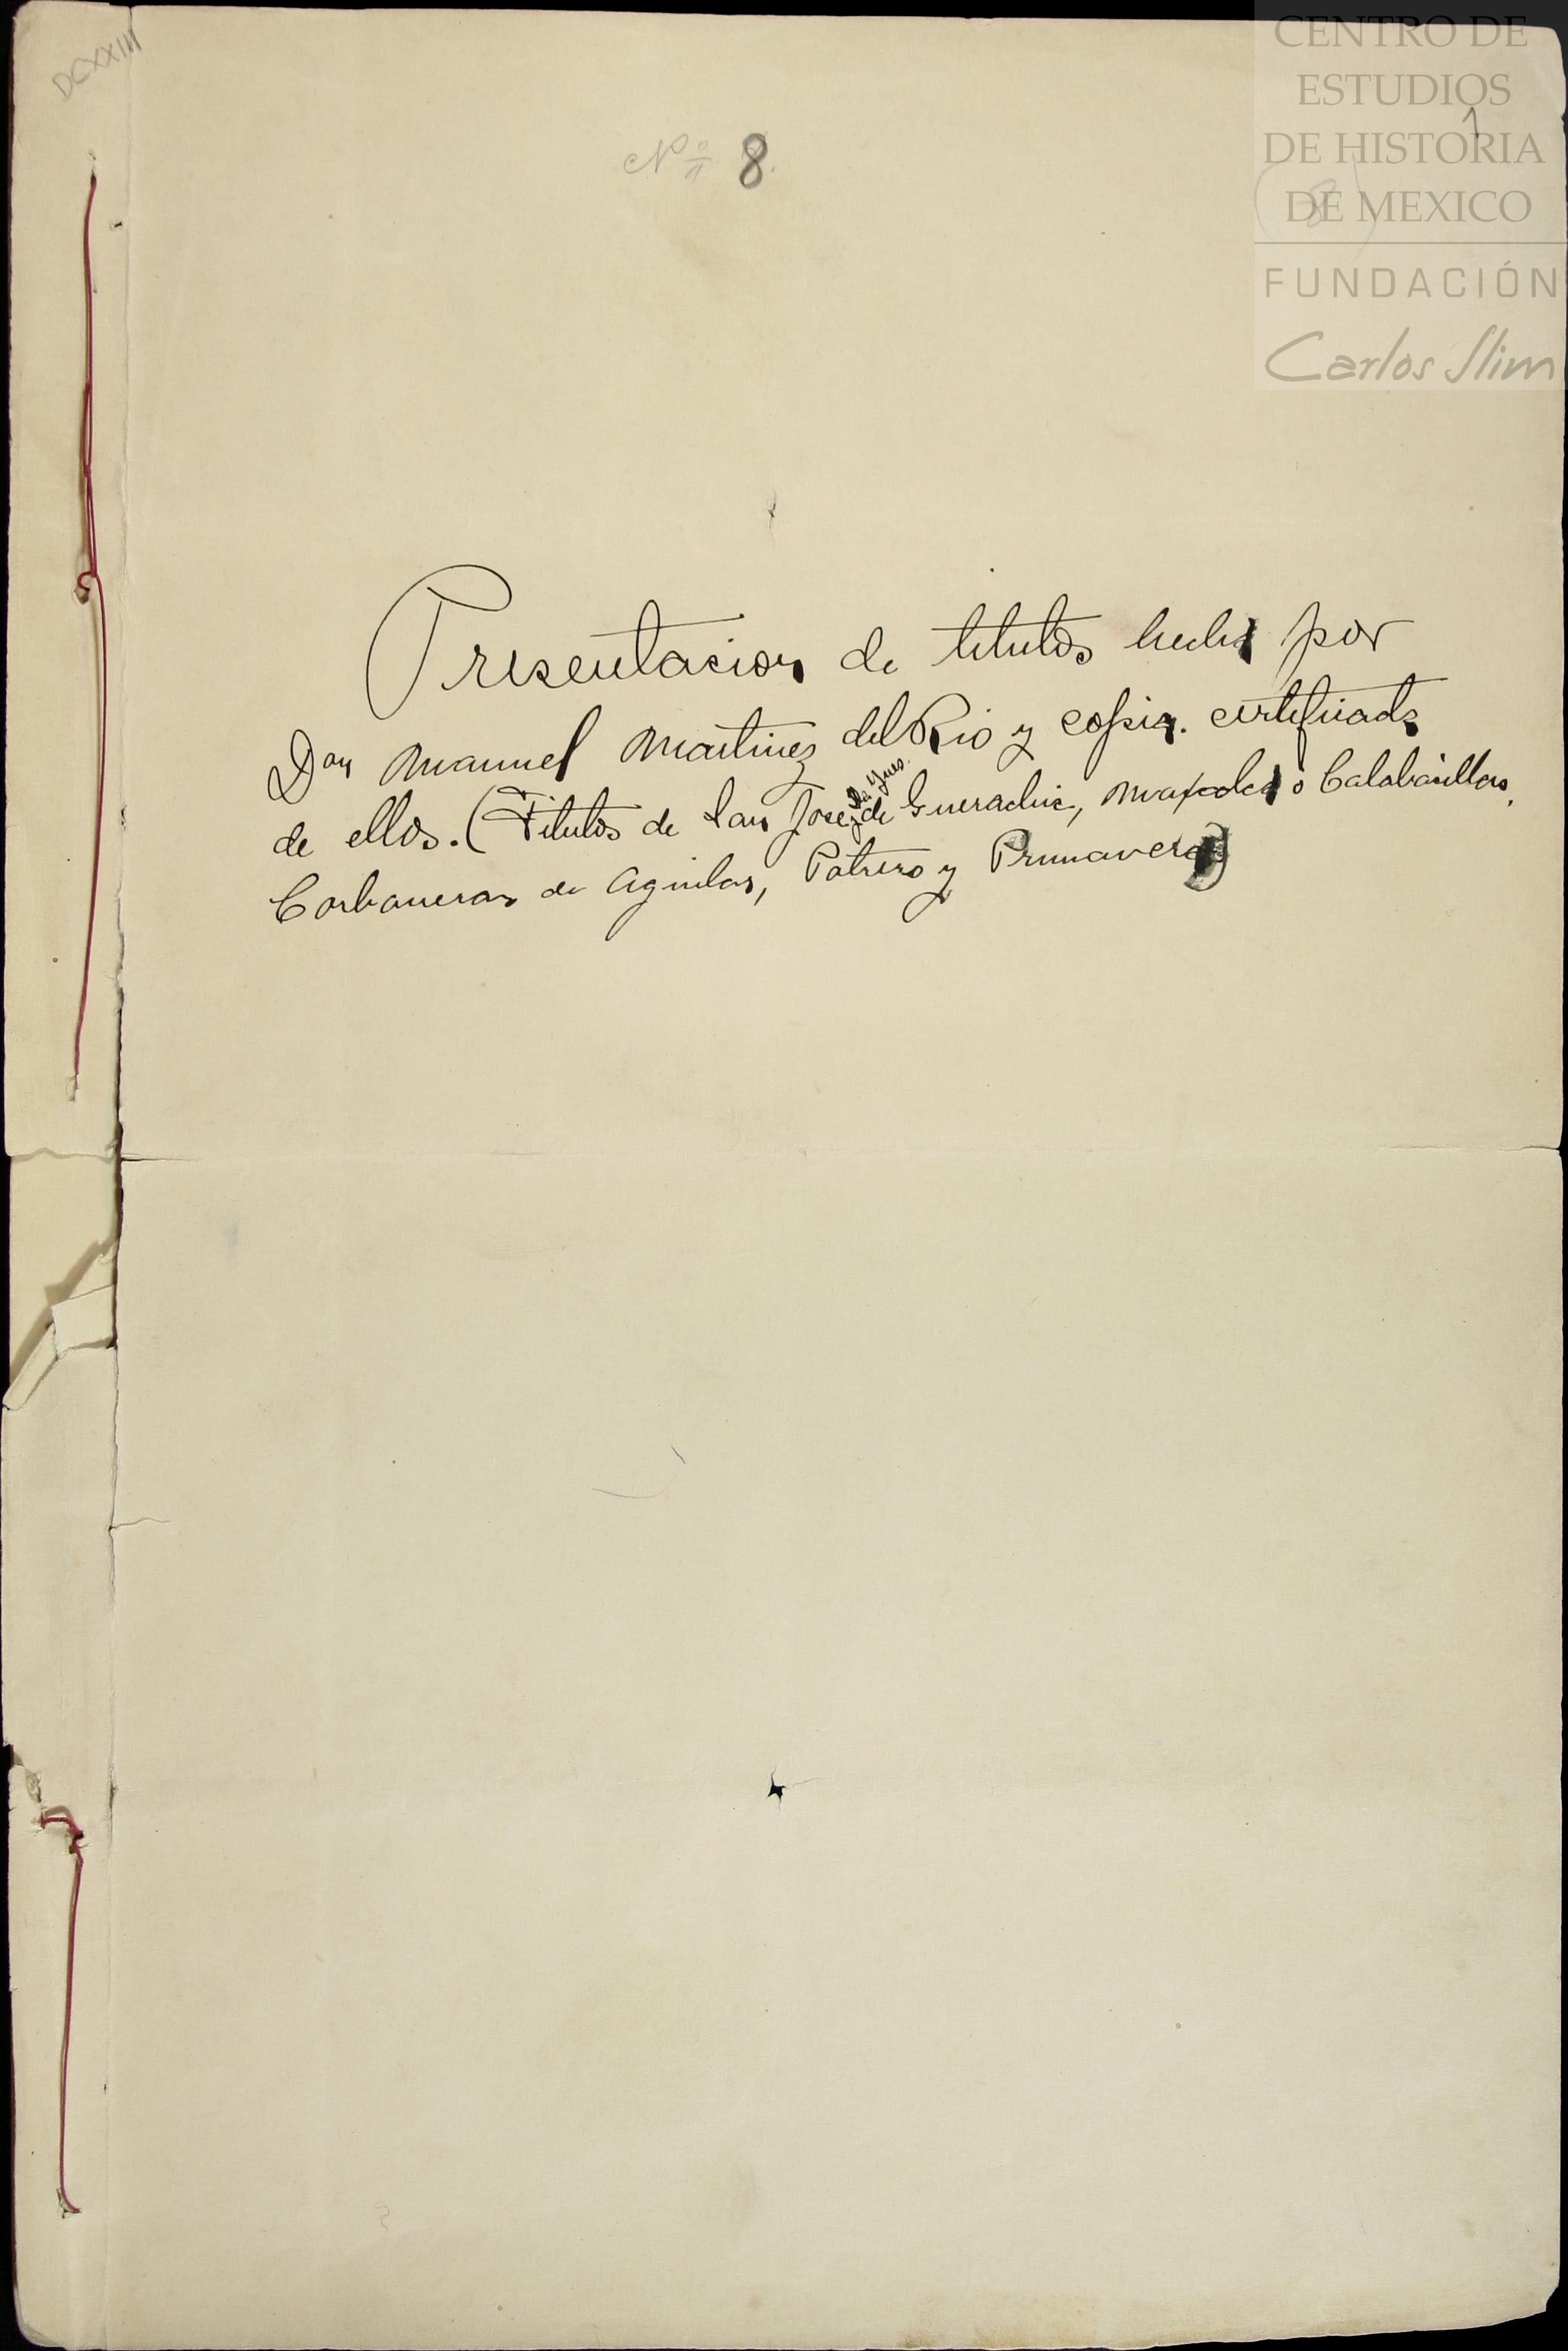 DCXXIII
CENTRO DE
ESTUDIOS
DE HISTORIA
DE MEXICO
FUNDACIÓN
Carlos Slim
1
(8)
Nº 8.
Presentacion de titulos hecha por
Don Manuel Martinez del Rio y copia. certificada
Sta Ynes.
de ellos. (Titulos de San José, de Guerachic, ó Calabacillas,
Carboneras de Aguilar, Potrero y Primavera)